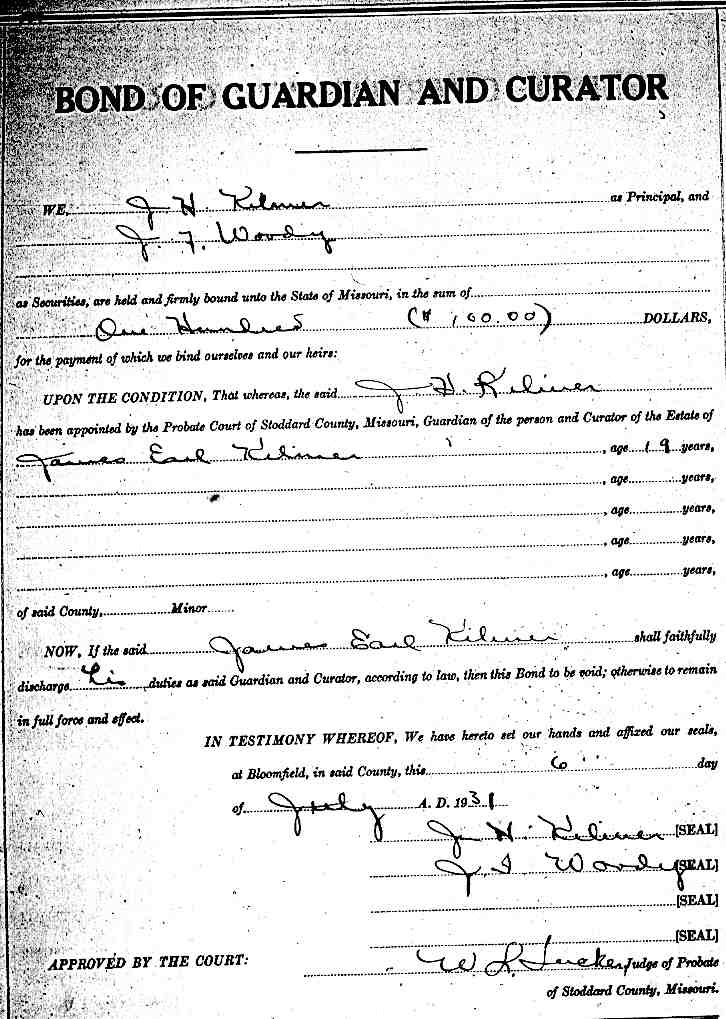 BOND OF GUARDIAN AND CURATOR
WE, J H Kilmer as Principal, and
J. F. Woody
as Securities, are held and firmly bound unto the State of Missouri, in the sum of
One Hundred ($ 100.00) DOLLARS,
for the payment of which we bind ourselves and our heirs:
UPON THE CONDITION, That whereas, the said J H. Kilmer
has been appointed by the Probate Court of Stoddard County, Missouri, Guardian of the person and Curator of the Estate of
James Earl Kilmer, age 19 years,
, age years,
, age years,
, age years,
, age years,
of said County, Minor
NOW, If the said James Earl Kilmer shall faithfully
discharge his duties as said Guardian and Curator, according to law, then this Bond to be void; otherwise to remain
in full force and effect.
IN TESTIMONY WHEREOF, We have hereto set our hands and affixed our seals,
at Bloomfield, in said County, this 6 day
of July A. D. 1931
J H. Kilmer [SEAL]
J. F Woody [SEAL]
[SEAL]
[SEAL]
APPROVED BY THE COURT: W L Tucker, Judge of Probate
of Stoddard County, Missouri.